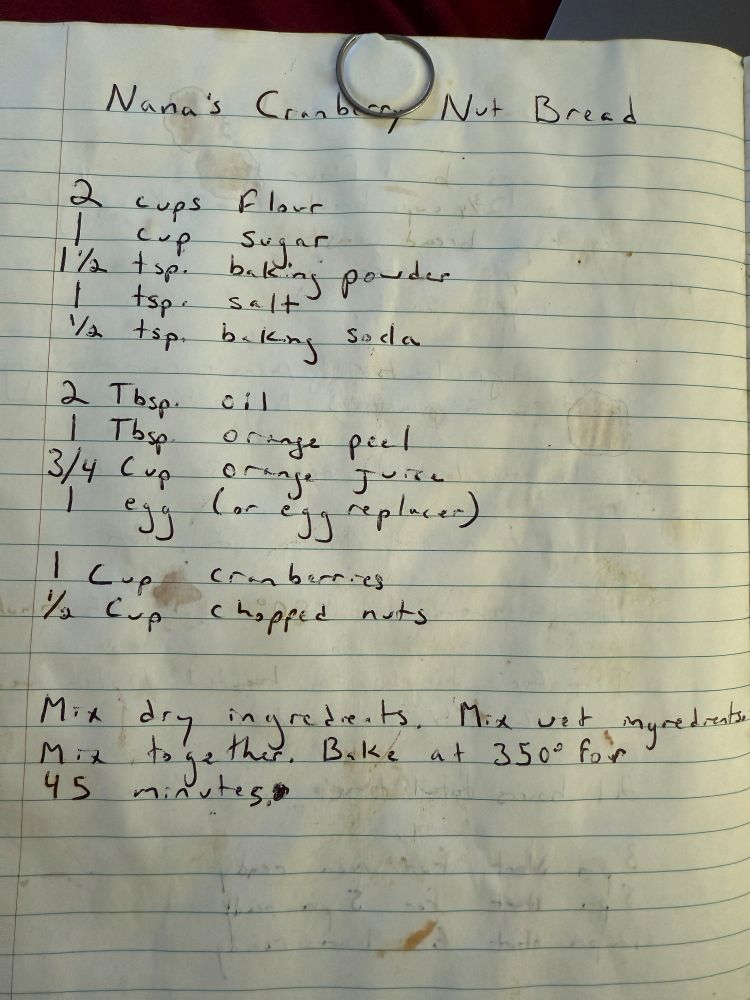 Nana's Cranberry Nut Bread
2 cups flour
1 cup sugar
1 1/2 tsp. baking powder
1 tsp. salt
1/2 tsp. baking soda
2 Tbsp. oil
1 Tbsp. orange peel
3/4 Cup orange juice
1 egg (or egg replacer)
1 Cup cranberries
1/2 Cup chopped nuts
Mix dry ingredients. Mix wet ingredients.
Mix together. Bake at 350° for
45 minutes.